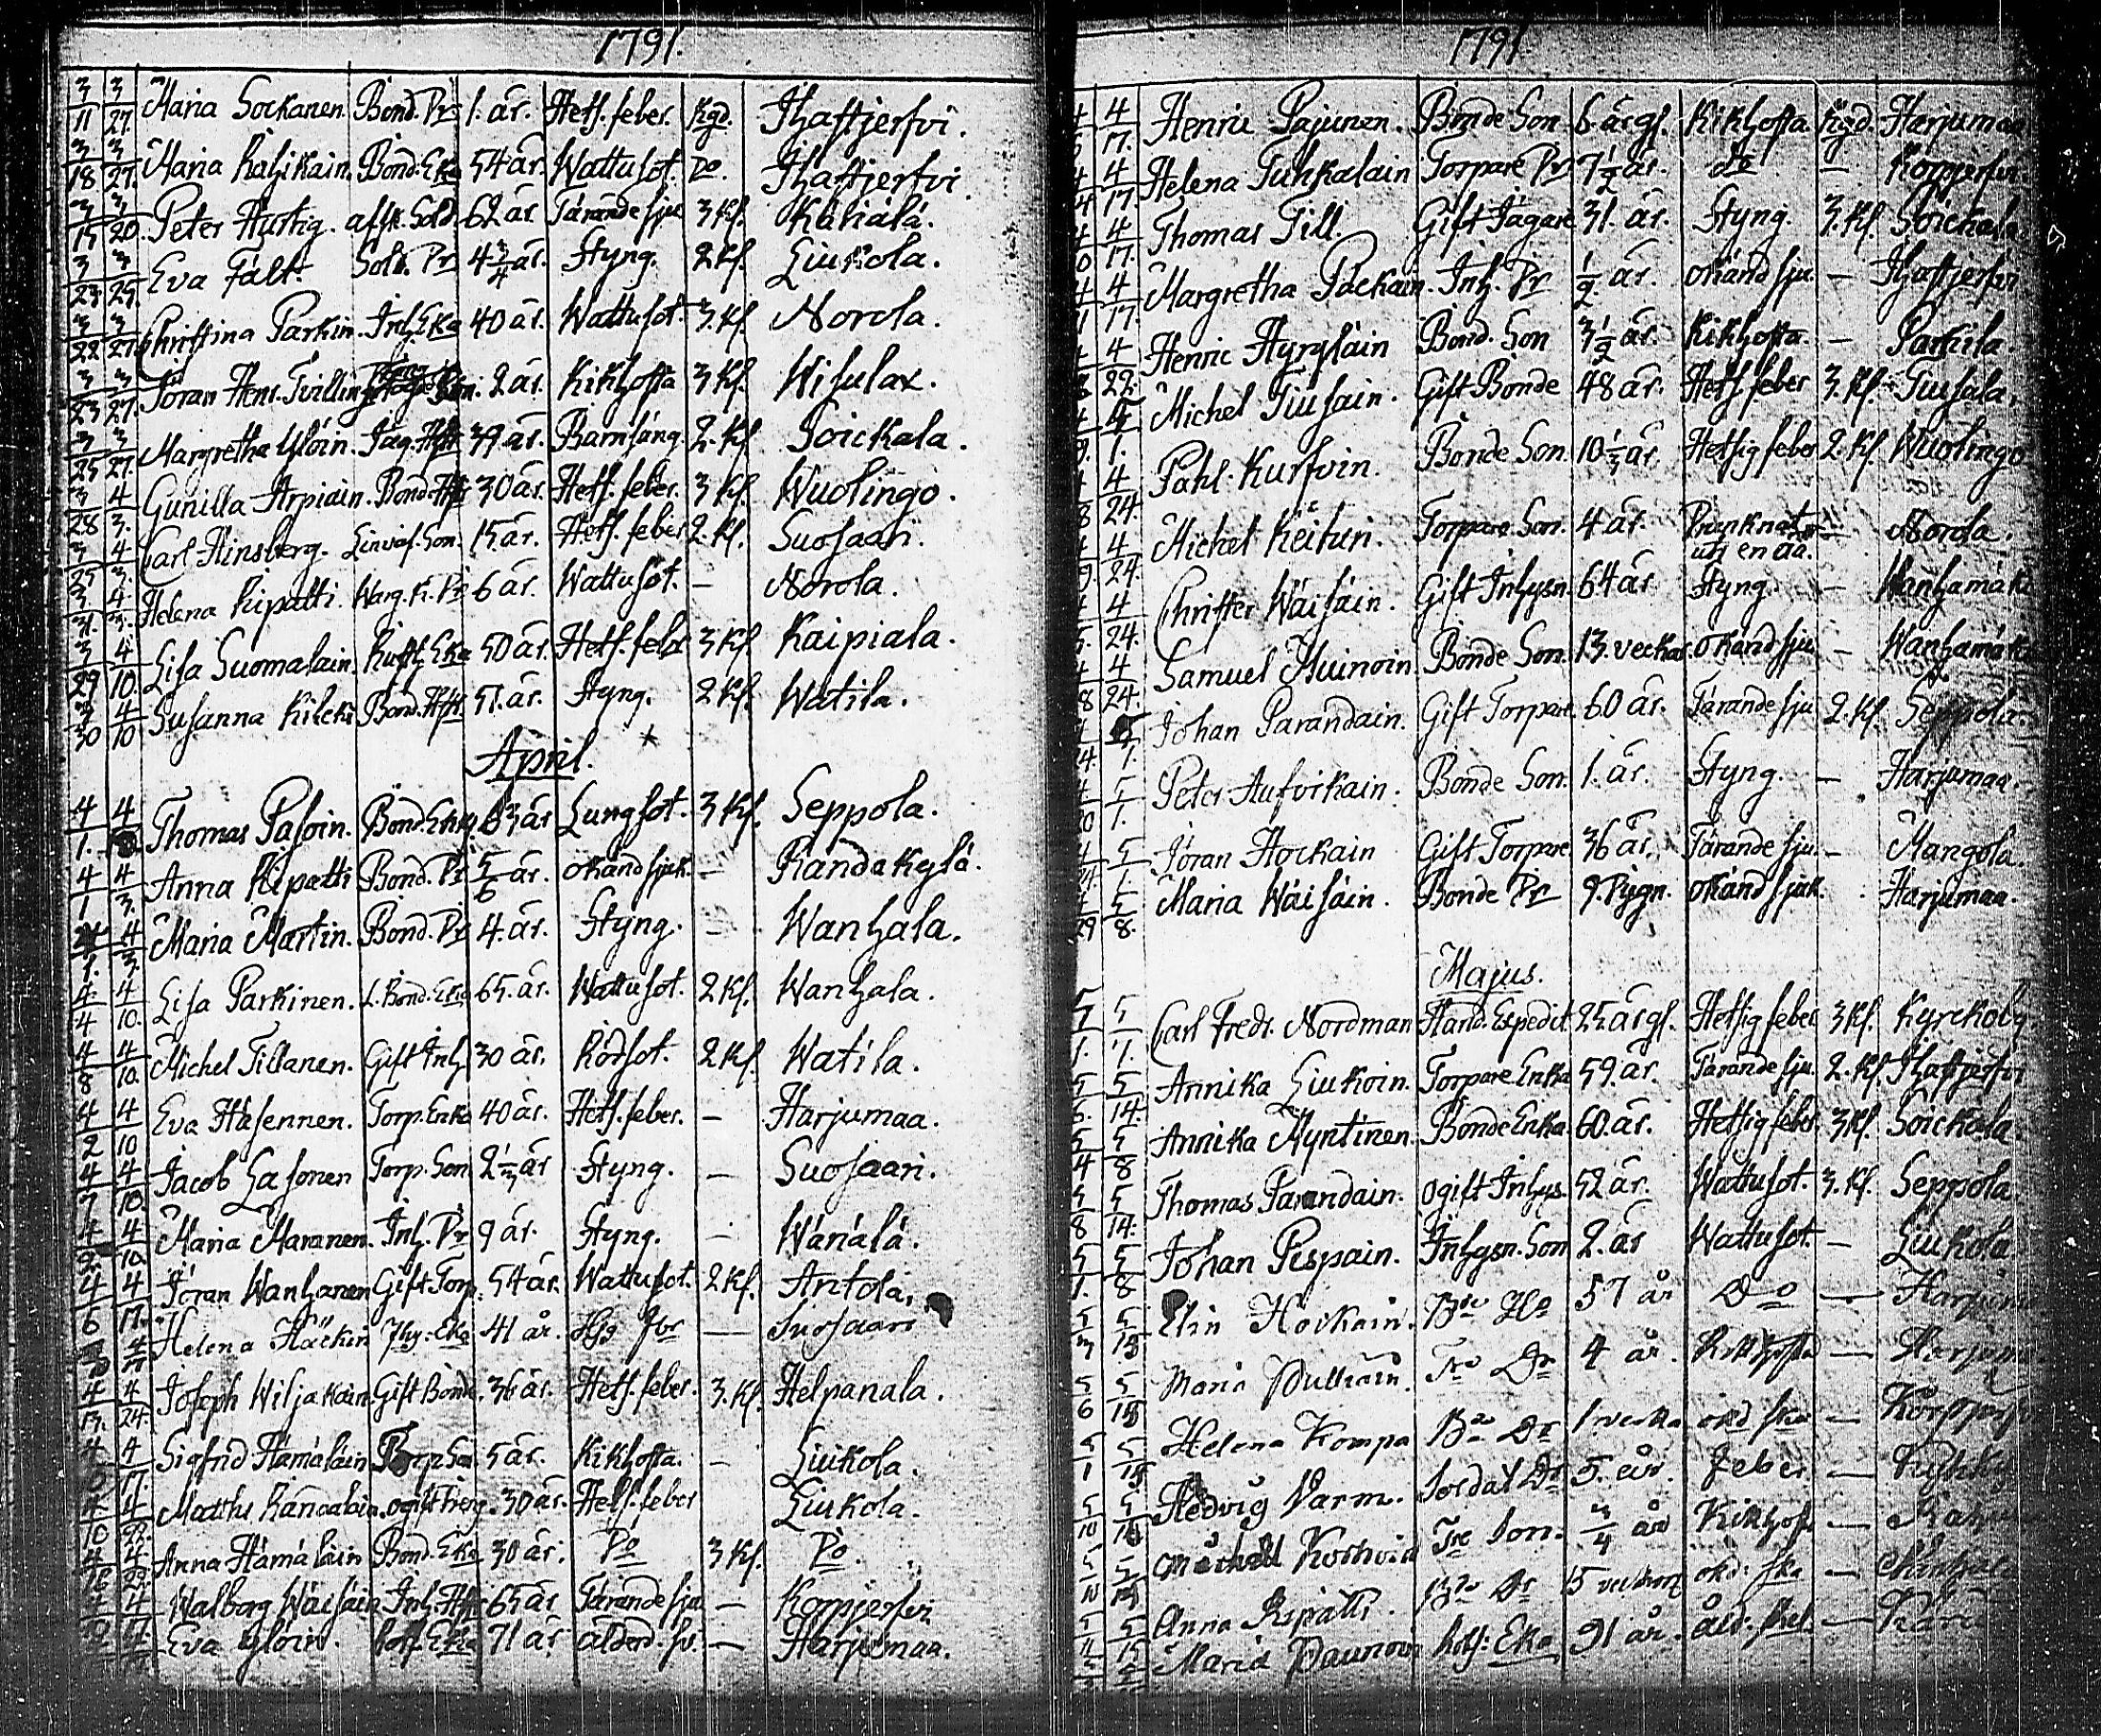 1791.
3/11 3/27. Maria Sockanen. Bond. Dr 1. år. Hets. feber. Kgd. Ihastjerfvi.
3/18 3/27. Maria Rahikain. Bond. Eka 54 år. Wattusot. Do. Ihastjerfvi
3/15 3/20. Peter Hurtig. afsk. Sold. 62 år. Tärande sju 3 Kl. Kähiälä.
3/23. 3/25. Eva Fält. Sold. Dr 4 3/4 år. Styng. 2 Kl. Liukola.
3/22 3/27. Christina Parkin. Inh. Eka 40 år. Wattusot. 3. Kl. Norola.
3/23 3/27. Jöran Henr. Tvilling 2 år. Kikhosta 3 Kl. Wisulax.
3/25 3/27. Margretha Ylöin. Jäg. Hst 39 år. Barnsäng. 2. Kl. Soickala.
3/28 4/3. Gunilla Arpiain. Bond. Hst 30 år. Hets. feber. 3 Kl. Wuolingo.
3/25 4/3. Carl Hinsberg. Linväf. Son. 15 år. Hets. feber 2. Kl. Suosaari.
3/31. 4/3. Helena Ripatti. Warg. K. Dr 6 år. Wattusot. — Norola.
3/29 4/10. Lisa Suomalain. Rusth. Eka 50 år. Hets. feber 3 Kl. Kaipiala.
3/30 4/10 Susanna Kilcki Bond. Hst 51. år. Styng. 2 Kl. Watila.
April.
4/1. 4 Thomas Pasoin. Bond. Enkl. 63 år Lungsot. 3 Kl. Seppola.
4/1 4/3. Anna Ripatti Bond. Dr 5/6 år. okänd sjuk. — Randakylä.
4/1. 4/3. Maria Martin. Bond. Dr 4. år. Styng. — Wanhala.
4/4 4/10. Lisa Parkinen. L. Bond. Eka 65. år. Wattusot. 2 Kl. Wanhala.
4/8 4/10. Michel Tillanen. Gift Inh. 30 år. Rödsot. 2 Kl. Watila.
4/2 4/10 Eva Häsennen. Torp. Enka 40 år. Hets. feber. — Harjumaa.
4/7 4/10. Jacob Lasonen Torp. Son 2 1/3 år Styng. — Suosaari.
4/2. 4/10. Maria Maranen. Inh. Dr 9 år. Styng. — Wänälä.
4/6 4/17. Jöran Wanhanen Gift Torp. 54 år. Wattusot. 2 Kl. Antola.
4/17 Helena Häckin Ihy: Eka 41 år. — Suosaari
4/13. 4/24. Joseph Wiljakain. Gift Bonde. 36 år. Hets. feber. 3. Kl. Helpanala.
4 4/17. Sigfrid Hämäläin Torp. Son 5 år. Kikhosta. — Liukola.
4/10 4 Matths ogift 30 år. Hets. feber Liukola.
4 4 Anna Hämäläin Bond. Eka 30 år. Do 3 Kl. Do.
4 4/17. Walborg Wäisäin Inh. Hst 65 år Tärande sju — Korpjerfvi
Eva Ylöin. Eka 71 år ålderd. — Harjumaa.
1791.
4 4/17. Henric Pajunen. Bonde Son 6. årgl. Kikhosta Kgd. Harjumaa
4 4/17. Helena Tuhkalain Torpare Dr 7 1/2 år. do — Korpjerfvi
4 4/17. Thomas Till. Gift Jägare 31. år. Styng. 3. Kl. Soickala
4 4/17. Margretha Packain. Inh. Dr 1/2 år. okänd sju. — Ihastjerfvi
4 4/22. Henric Hyryläin Bond. Son 3 1/2 år. Kikhosta. — Parkila.
4 5/1. Michel Tiusain. Gift Bonde 48 år. Hets. feber 3. Kl. Tiusala.
4 4/24. Påhl. Kurfvin. Bonde Son. 10 1/3 år. Hetsig feber 2. Kl. Wuolingo
4 4/24. Michel Keihin. Torpare Son. 4 år. Drunknat uti en åå. — Norola.
4 4/24. Christer Wäisäin. Gift Inhysn. 64 år Styng. — Wanhamäki
4 4/24. Samuel Muinoin Bonde Son. 13. veckor. okänd sju — Wanhamäki
4 5/1. Johan Parandain. Gift Torpare. 60 år. Tärande sju 2. Kl. Seppola.
4 5/1. Peter Aufvikain. Bonde Son. 1. år. Styng. — Harjumaa.
4/24. 5/1 Jöran Hockain Gift Torpare 36 år. Tärande sju. — Mangola.
4/29 5/8. Maria Wäisäin. Bonde Dr 9. Dygn. okänd sjuk. Harjumaa.
Majus.
5/1. 5/1. Carl Fredr. Nordman Hand. Expedit. 25 årgl. Hetsig feber 3 Kl. Kyrckoby.
5/6. 5/14. Annika Liukoin. Torpare Enka 59. år. Tärande sju. 2. Kl Ihastjerfvi
5/4 5/8 Annika Myntinen. Bonde Enka 60. år. Hetsig feber 3 Kl. Soickala.
5/8 5/14. Thomas Parandain. ogift Inhys. 52 år. Wattusot. 3. Kl. Seppola
5/1. 5/8 Johan Pespain. Inhysn. Son 2. år Wattusot. — Liukola
5 5/15 Elin Hockain. Bde 57 år Do —
5/6 5/15 Maria Dr 4 år. Kikhosta —
5/1 5/15 Helena Kompa Bde Dr 1 vecka okd ska —
5/10 5 Hedvig Varm. Soldat Dr 5. år. Feber. —
5/10 5/15 Michell Son. 3/4 år Kikhosta —
5/11 5/15 Anna Ripatti. Bde Dr 15 veckor okd: ska —
Maria Daunoin Eka 91 år. —